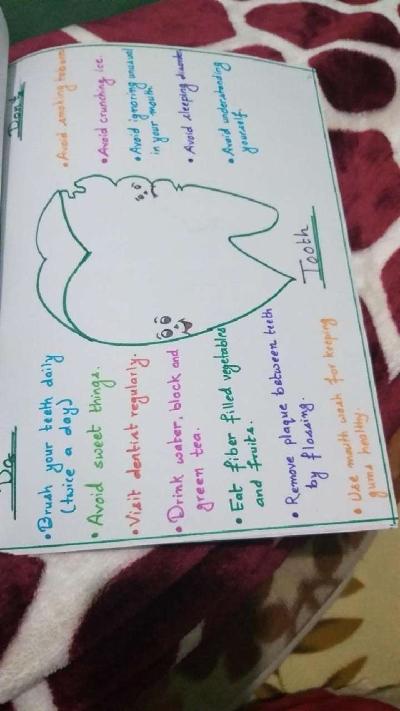 Do
• Brush your teeth daily
(twice a day)
• Avoid sweet things.
• Visit dentist regularly.
• Drink water, black and
green tea.
• Eat fiber filled vegetables
and fruits.
• Remove plaque between teeth
by flossing.
• Use mouth wash for keeping
gums healthy.
Tooth
Don't
• Avoid smoking
• Avoid crunching ice.
• Avoid ignoring unusual
in your mouth
• Avoid sleeping disorder
• Avoid understanding
yourself.